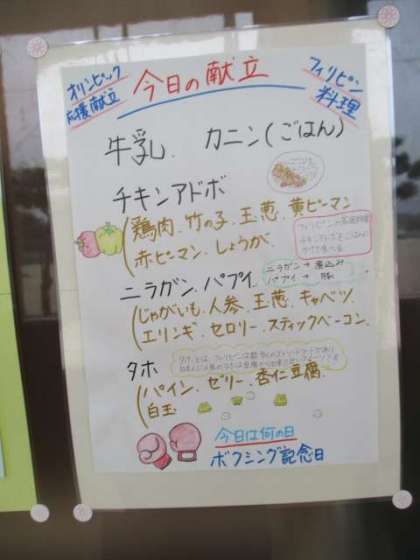 オリンピック
応援献立
今日の献立
フィリピン
料理
牛乳 カニン(ごはん)
チキンアドボ
鶏肉.竹の子.玉葱.黄ピーマン
赤ピーマン.しょうが.
ニラガン.バブイ
ニラガン→煮込み
バブイ→豚
じゃがいも.人参.玉葱.キャベツ.
エリンギ.セロリー.スティックベーコン.
タホ
パイン.ゼリー.杏仁豆腐.
白玉
今日は何の日
ボクシング記念日